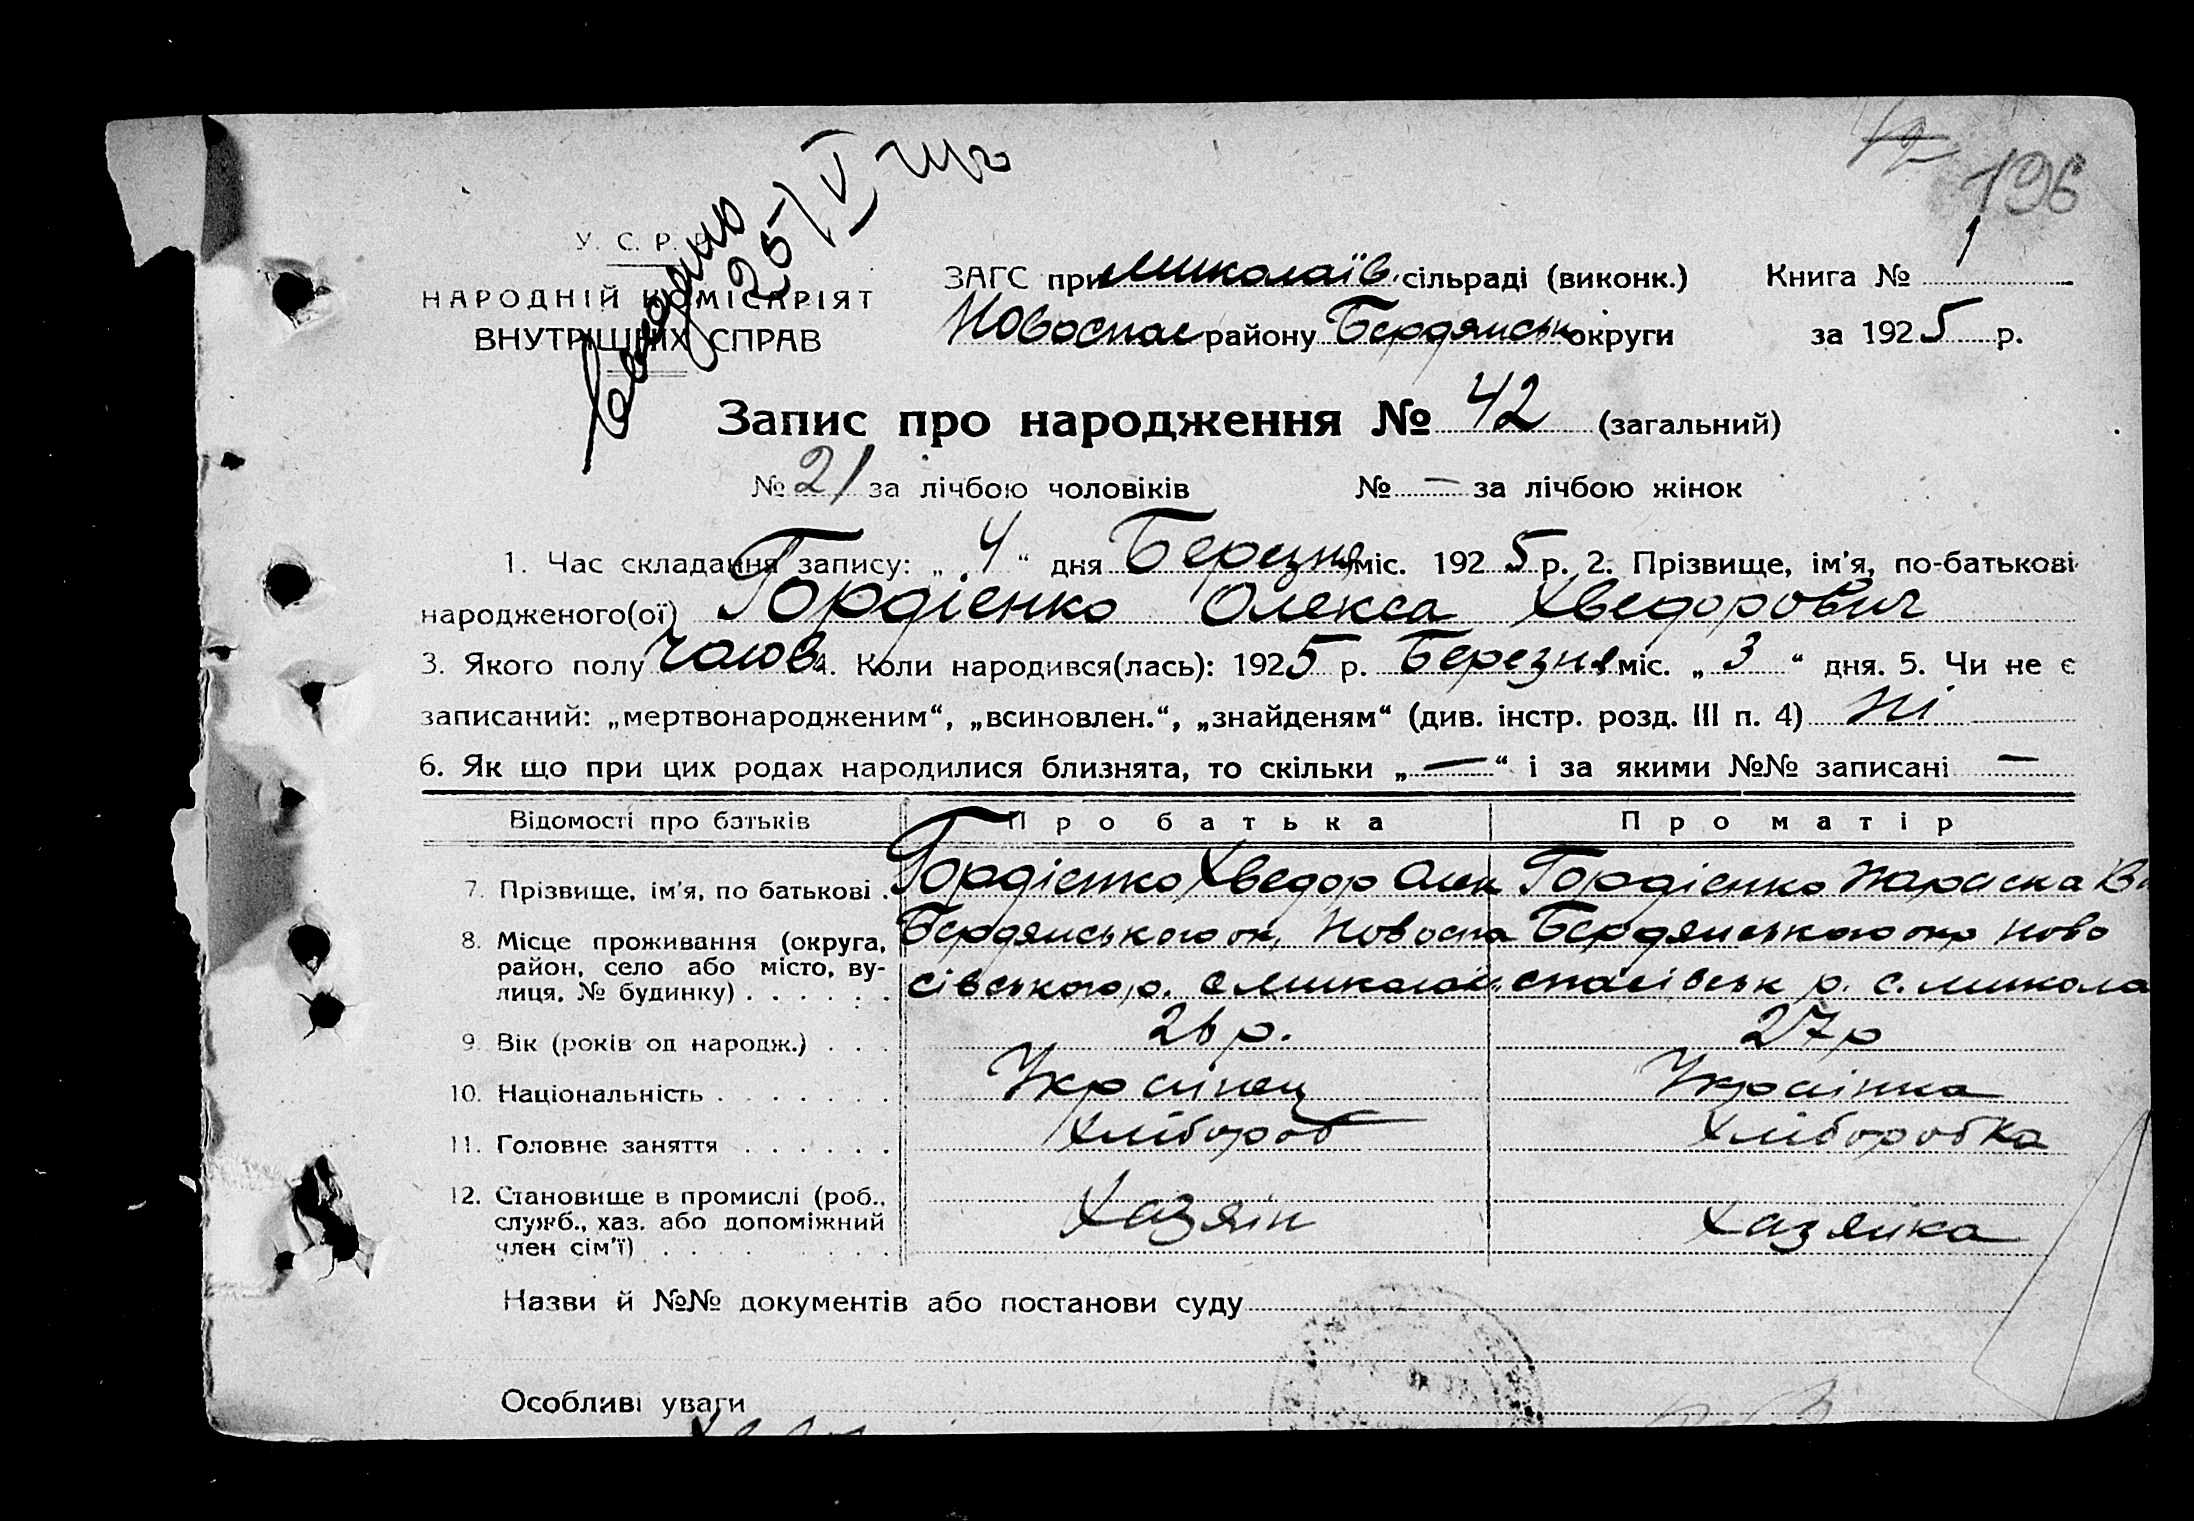 196
У. С. Р. Р.
НАРОДНІЙ КОМІСАРІЯТ
ВНУТРІШНІХ СПРАВ
25/V
ЗАГС при Миколаїв. сільраді (виконк.) Книга № 1
Новоспас району Бердянськ округи за 1925 р.
Запис про народження № 42 (загальний)
№ 21 за лічбою чоловіків № — за лічбою жінок
1. Час складання запису: „ 4 “ дня Березня міс. 1925 р. 2. Прізвище, ім'я, по-батькові
народженого(ої) Гордієнко Олекса Хведорович
3. Якого полу чолов. 4. Коли народився(лась): 1925 р. Березня міс. „ 3 “ дня. 5. Чи не є
записаний: „мертвонародженим“, „всиновлен.“, „знайденям“ (див. інстр. розд. III п. 4) Ні
6. Як що при цих родах народилися близнята, то скільки „ — “ і за якими №№ записані —
Відомості про батьків Про батька Про матір
7. Прізвище, ім'я, по батькові . Гордієнко Хведор Олек Гордієнко Параска
8. Місце проживання (округа, Бердянського ок, Новоспа Бердянського окр Ново
район, село або місто, ву-
лиця, № будинку) . . . . . . сівського р. с Миколаїв. спасівськ р. с. Микола
9. Вік (років од народж.) . . . 26 р. 27 р
10. Національність . . . . . . . Українец Українка
11. Головне заняття . . . . . . Хлібороб Хліборобка
12. Становище в промислі (роб.,
служб., хаз. або допоміжний Хазяїн Хазяйка
член сім'ї) . . . . . . . . .
Назви й №№ документів або постанови суду
Особливі уваги